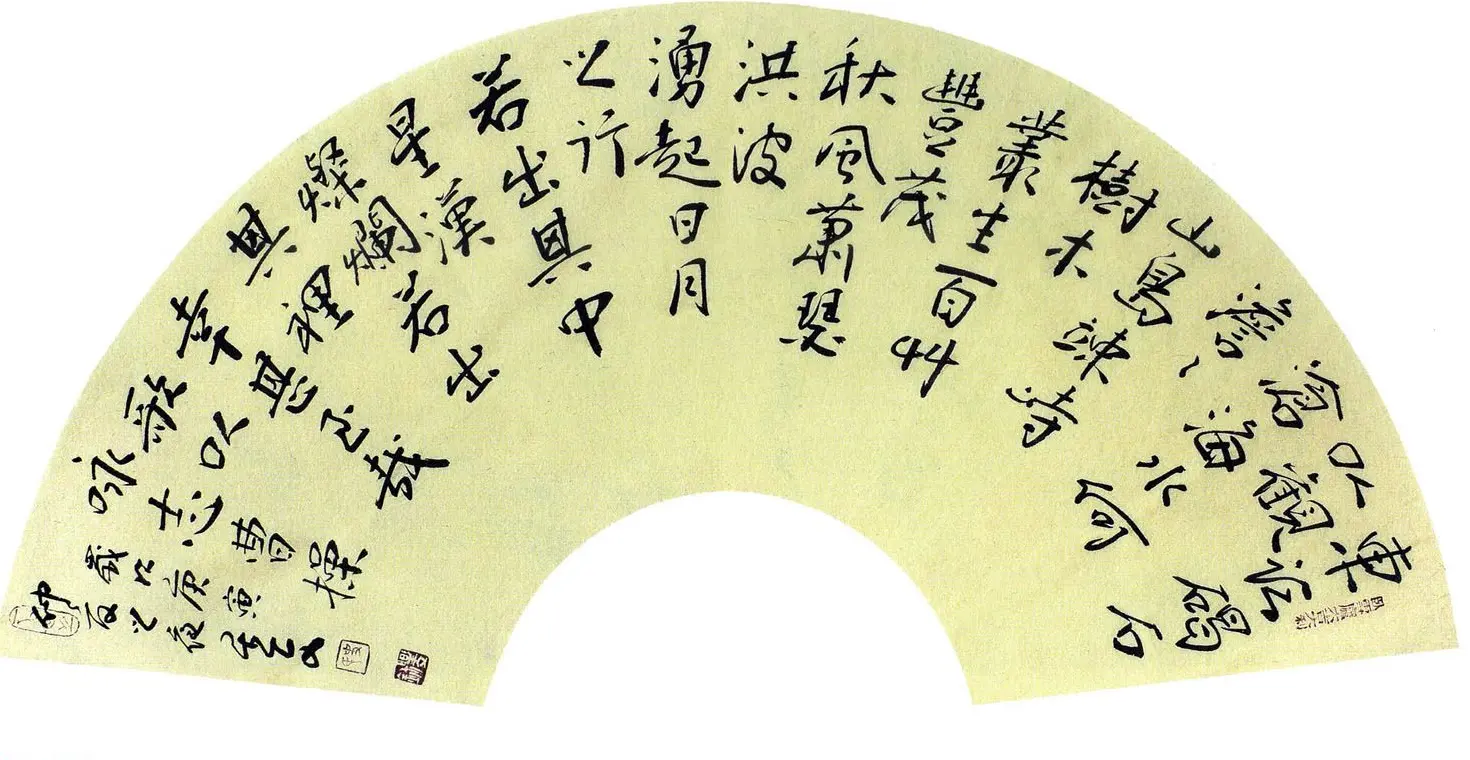 東临碣石
以觀
滄海水何
澹〻
山島竦峙
樹木
叢生百艸
豐茂
秋風蕭瑟
洪波
湧起日月
之行
若出其中
星漢
燦爛若出
其裡
幸甚至哉
歌以
詠志曹操
歲次庚寅
仲夏之夜